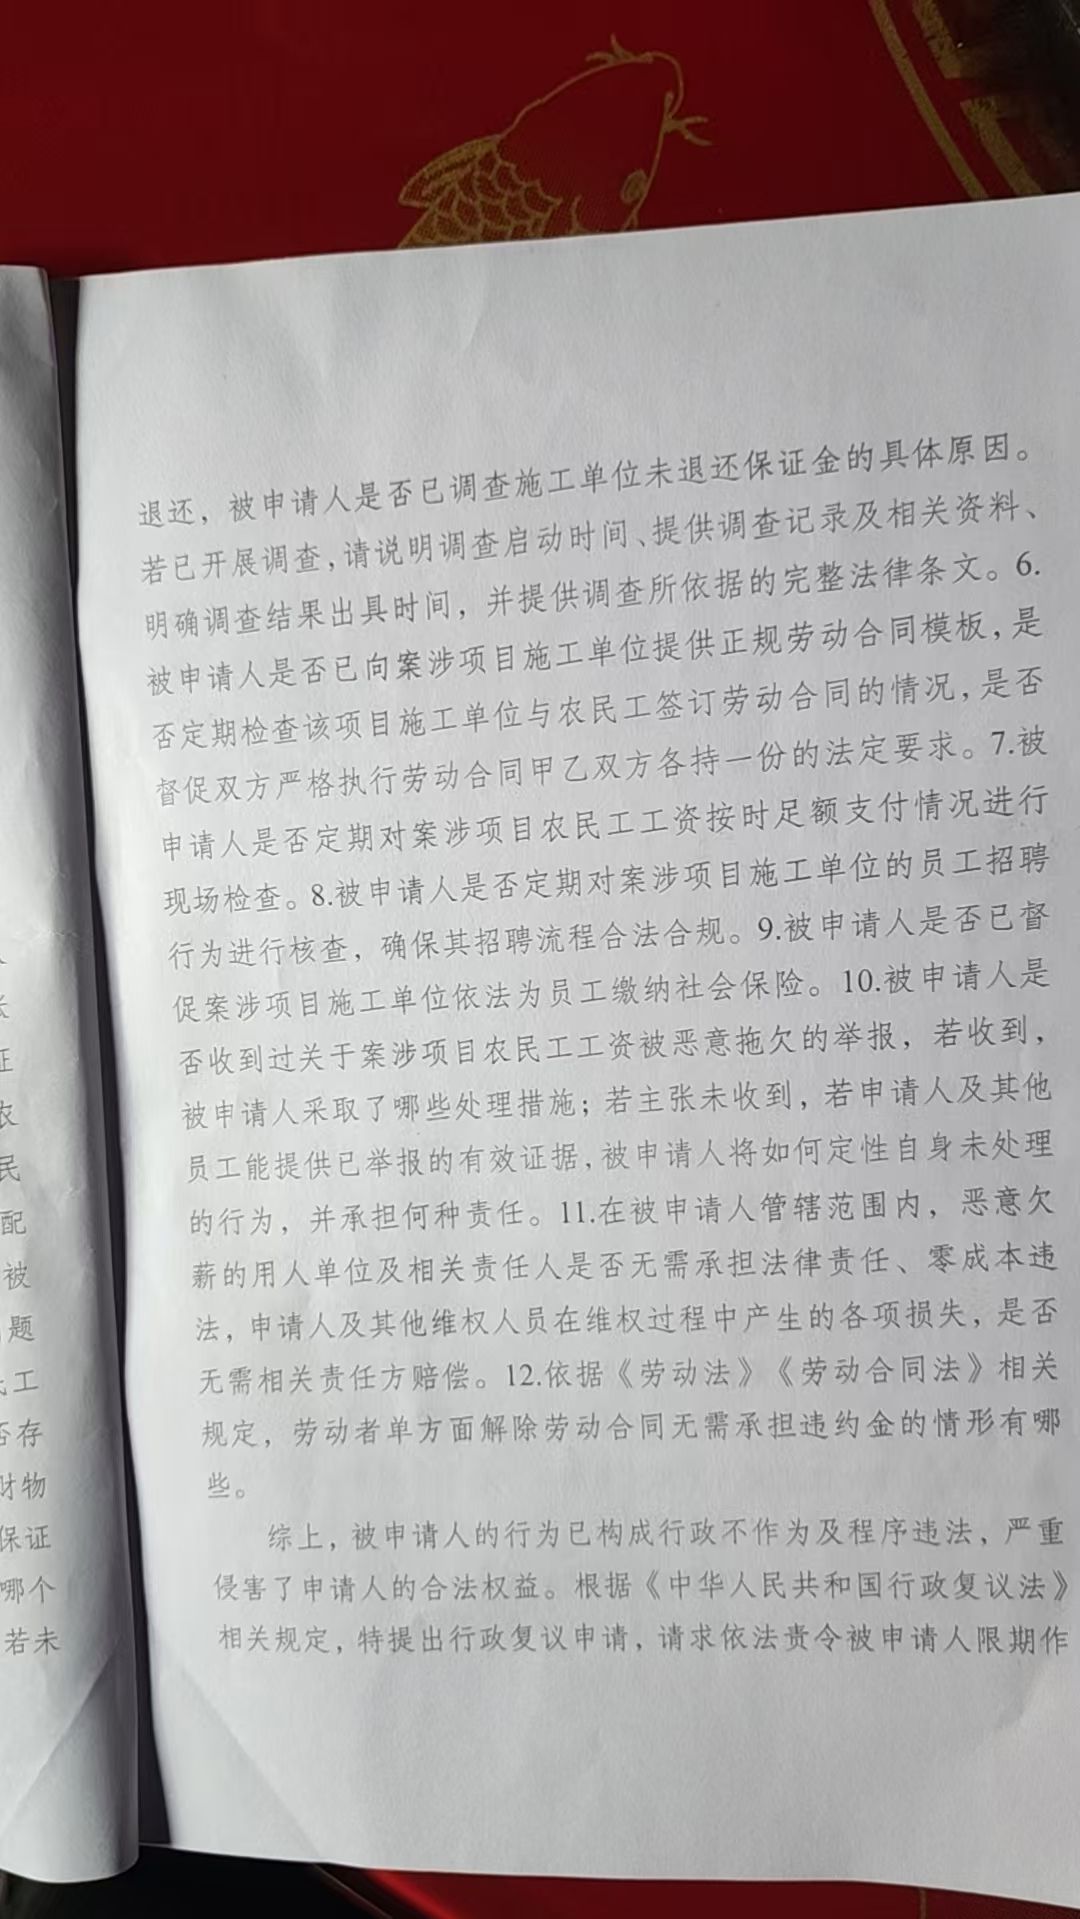 退还，被申请人是否已调查施工单位未退还保证金的具体原因。
若已开展调查，请说明调查启动时间、提供调查记录及相关资料、
明确调查结果出具时间，并提供调查所依据的完整法律条文。6.
被申请人是否已向案涉项目施工单位提供正规劳动合同模板，是
否定期检查该项目施工单位与农民工签订劳动合同的情况，是否
督促双方严格执行劳动合同甲乙双方各持一份的法定要求。7.被
申请人是否定期对案涉项目农民工工资按时足额支付情况进行
现场检查。8.被申请人是否定期对案涉项目施工单位的员工招聘
行为进行核查，确保其招聘流程合法合规。9.被申请人是否已督
促案涉项目施工单位依法为员工缴纳社会保险。10.被申请人是
否收到过关于案涉项目农民工工资被恶意拖欠的举报，若收到，
被申请人采取了哪些处理措施；若主张未收到，若申请人及其他
员工能提供已举报的有效证据，被申请人将如何定性自身未处理
的行为，并承担何种责任。11.在被申请人管辖范围内，恶意欠
薪的用人单位及相关责任人是否无需承担法律责任、零成本违
法，申请人及其他维权人员在维权过程中产生的各项损失，是否
无需相关责任方赔偿。12.依据《劳动法》《劳动合同法》相关
规定，劳动者单方面解除劳动合同无需承担违约金的情形有哪
些。
综上，被申请人的行为已构成行政不作为及程序违法，严重
侵害了申请人的合法权益。根据《中华人民共和国行政复议法》
相关规定，特提出行政复议申请，请求依法责令被申请人限期作
民
配
被
题
工
存
财物
保证
哪个
若未